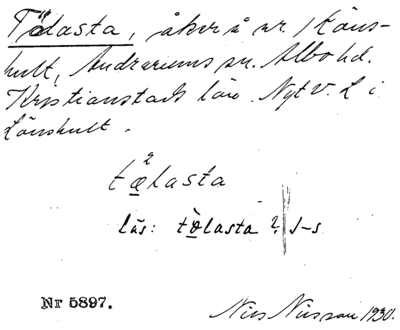 Tölasta, åkrå nr. 1 Läns-
hult, Andrarums sn. Albo hd.
Kristianstads län. Nytv. L i
Länshult.
2
tœlasta
läs: tòlasta? J-s
Nr 5897.
Nils Nilsson 1930.